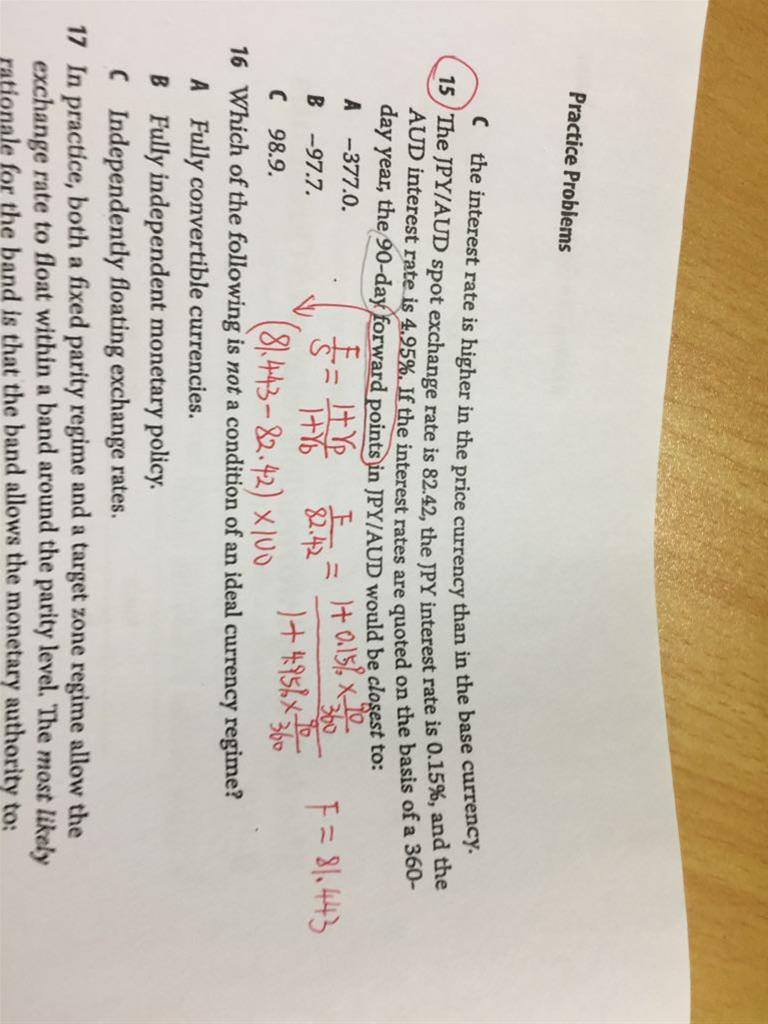 Practice Problems
C the interest rate is higher in the price currency than in the base currency.
15 The JPY/AUD spot exchange rate is 82.42, the JPY interest rate is 0.15%, and the
AUD interest rate is 4.95%. If the interest rates are quoted on the basis of a 360-
day year, the 90-day forward points in JPY/AUD would be closest to:
A −377.0.
B −97.7.
C 98.9.
F/S = 1+rp/1+rb F/82.42 = 1+0.15%×90/360 / 1+4.95%×90/360 F = 81.443
(81.443-82.42) ×100
16 Which of the following is not a condition of an ideal currency regime?
A Fully convertible currencies.
B Fully independent monetary policy.
C Independently floating exchange rates.
17 In practice, both a fixed parity regime and a target zone regime allow the
exchange rate to float within a band around the parity level. The most likely
rationale for the band is that the band allows the monetary authority to: